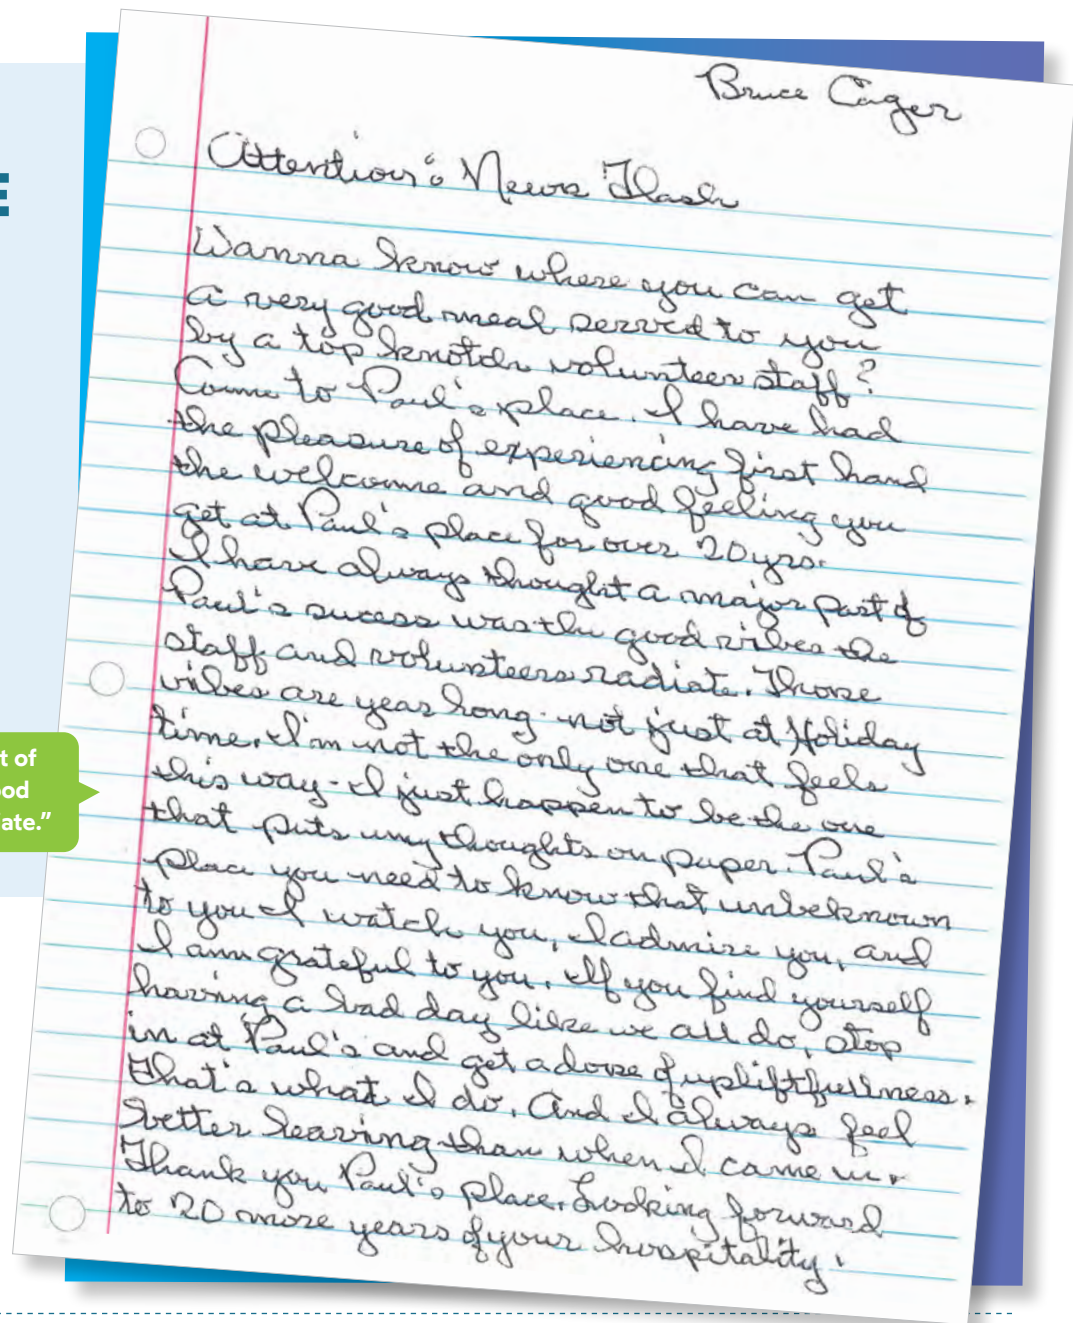 Bruce Cager
Attention: News Flash
Wanna know where you can get
a very good meal served to you
by a top knotch volunteer staff?
Come to Paul's place. I have had
the pleasure of experiencing first hand
the welcome and good feeling you
get at Paul's place for over 20 yrs.
I have always thought a major part of
Paul's sucess was the good vibes the
staff and volunteers radiate. Those
vibes are year long - not just at Holiday
time. I'm not the only one that feels
this way - I just happen to be the one
that puts my thoughts on paper. Paul's
place you need to know that unbeknown
to you I watch you, I admire you, and
I am grateful to you. If you find yourself
having a bad day like we all do, stop
in at Paul's and get a dose of upliftfullness.
That's what I do. And I always feel
better leaving than when I came in.
Thank you Paul's place. Looking forward
to 20 more years of your hospitality.
E
t of
od
ate.”